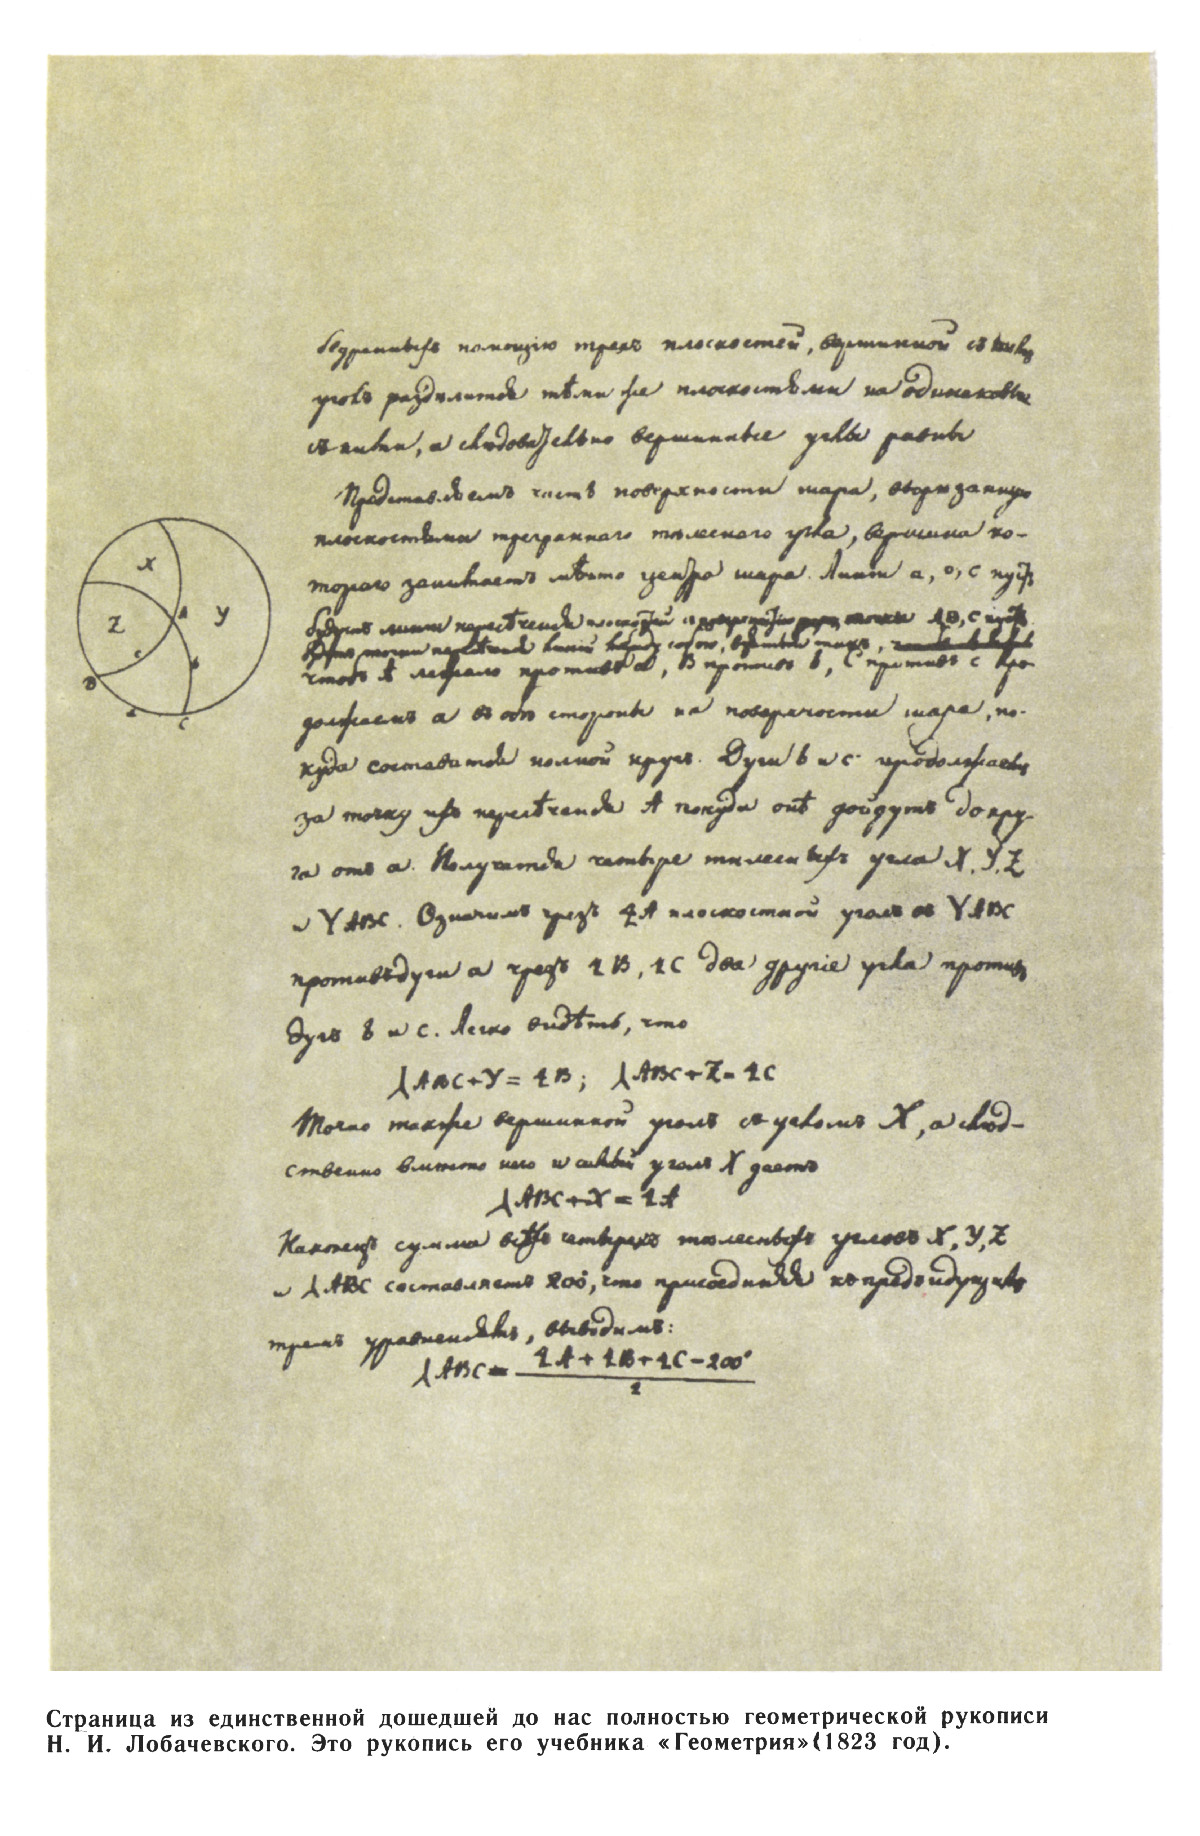 помощію трехъ плоскостей, вершинной съ
уголъ раздѣлится тѣми же плоскостями на одинаковые
съ ними, а слѣдовательно вершинные углы равны
Представляемъ часть поверхности шара, вырезанную
плоскостями трегранного тѣлеснаго угла, вершина ко-
тораго занимаетъ мѣсто центра шара. Линіи a, b, c пусть
будутъ линіи пересѣченія плоскостей A, B, C пусть
точки пересѣченія линій между собою, взятыя такъ,
чтобъ A лежало противъ a, B противъ b, C противъ c про-
должаемъ a въ обѣ стороны на поверхности шара, по-
куда составится полной кругъ. Дуги b и c продолжаемъ
за точку ихъ пересѣченія A покуда онѣ дойдутъ до кру-
га отъ a. Получатся четыре тѣлесныхъ угла X, Y, Z
и ⅄ABC. Означимъ чрезъ ∠A плоскостной уголъ въ ⅄ABC
противъ дуги a чрезъ ∠B, ∠C два другіе угла противъ
дугъ b и c. Легко видѣть, что
⅄ABC+Y=∠B; ⅄ABC+Z=∠C
Точно также вершинной уголъ съ угломъ X, а слѣд-
ственно вмѣсто него и самый уголъ X даетъ
⅄ABC+X=∠A
Наконецъ сумма всѣхъ четырехъ тѣлесныхъ угловъ X, Y, Z
и ⅄ABC составляетъ 200°, что присоединяя къ предъидущимъ
тремъ уравненіямъ, выводимъ:
⅄ABC = ∠A+∠B+∠C−200°
2
X
Z
Y
A
c
b
B
a
C
Страница из единственной дошедшей до нас полностью геометрической рукописи
Н. И. Лобачевского. Это рукопись его учебника «Геометрия» (1823 год).